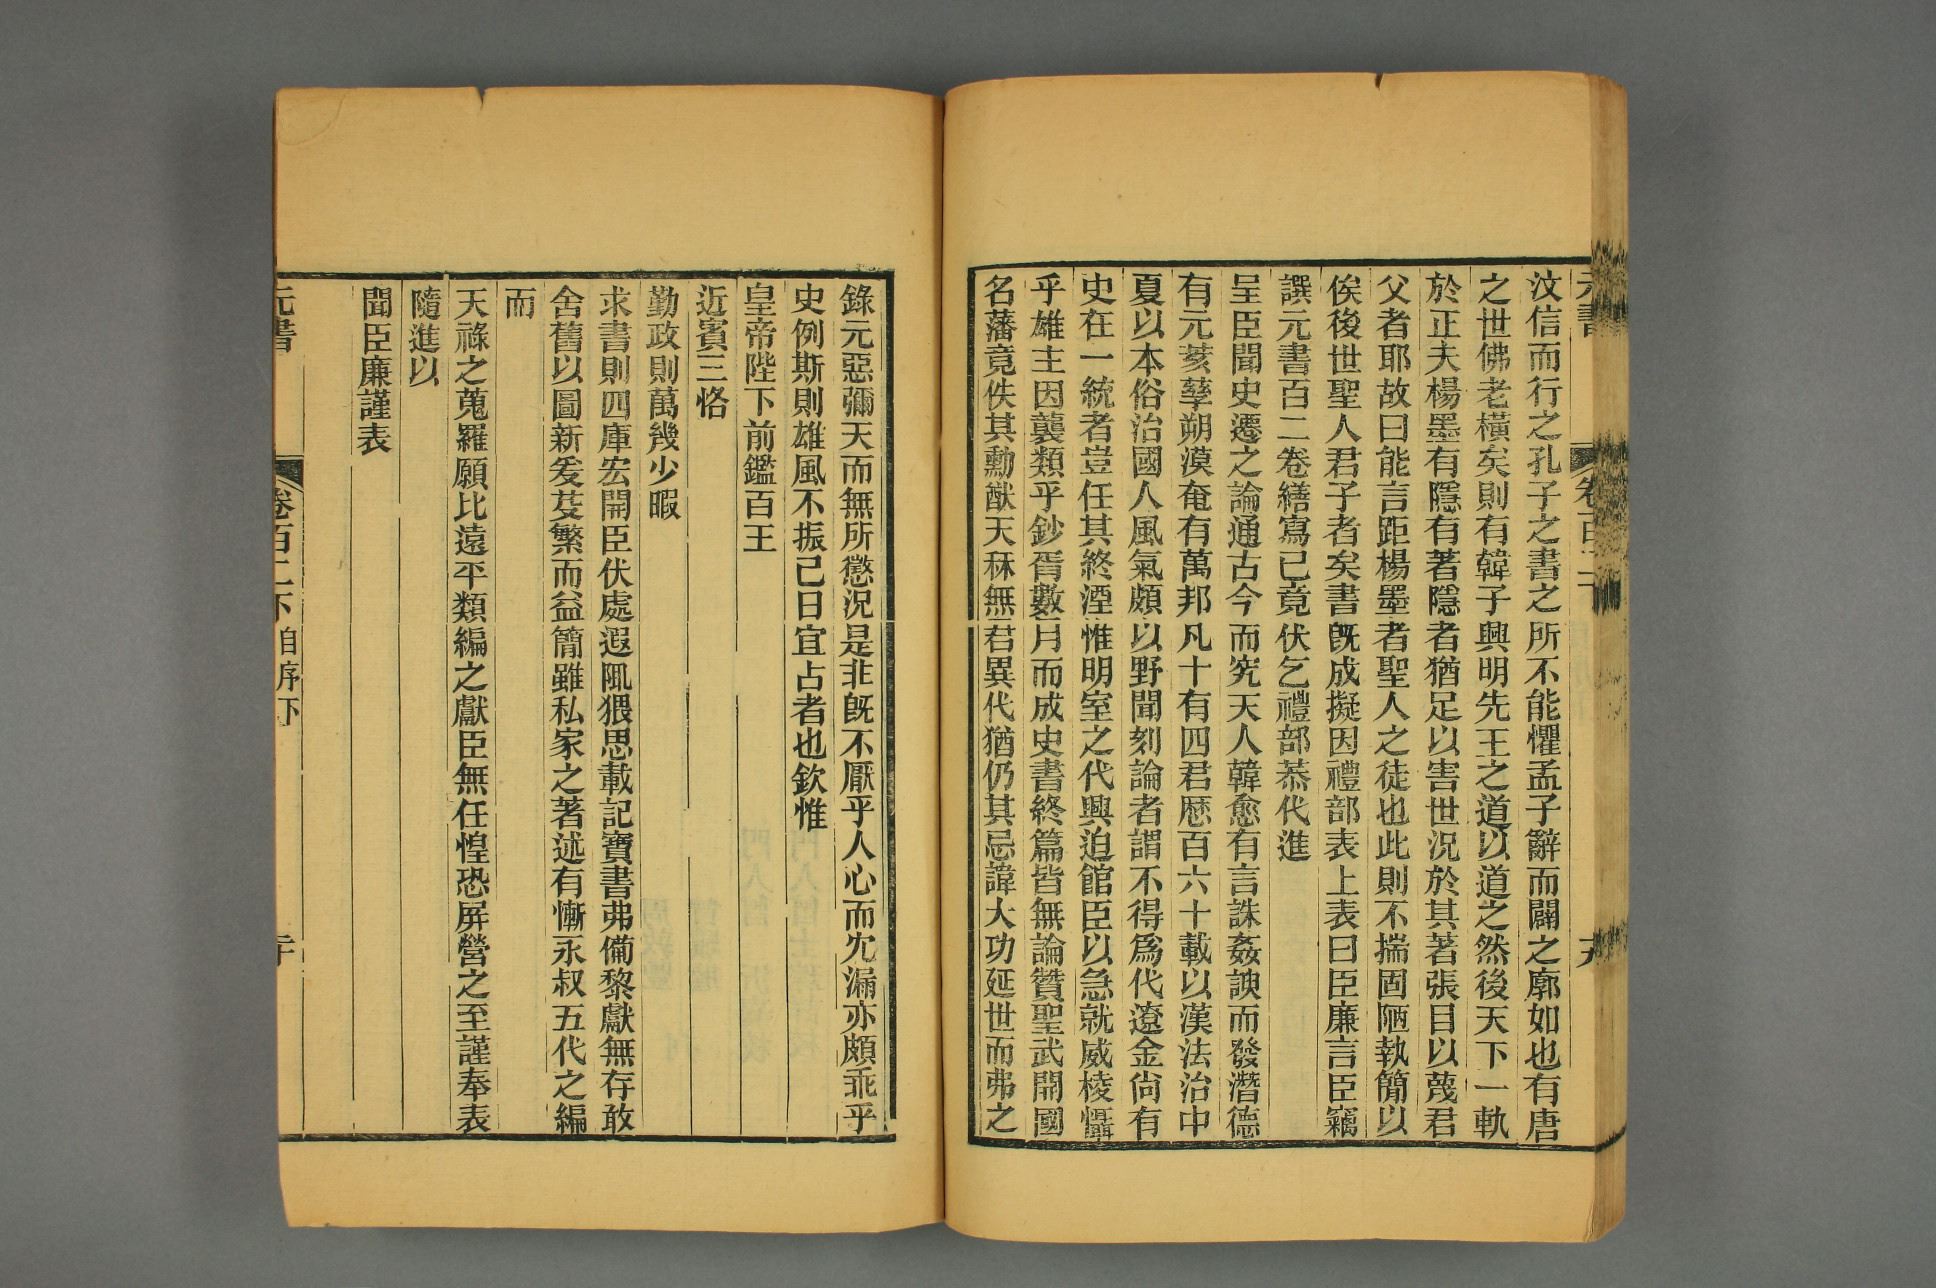 汶信而行之孔子之書之所不能懼孟子辭而闢之廓如也有唐
之世佛老橫矣則有韓子興明先王之道以道之然後天下一軌
於正夫楊墨有隱有著隱者猶足以害世況於其著張目以蔑君
父者耶故曰能言距楊墨者聖人之徒也此則不揣固陋執簡以
俟後世聖人君子者矣書旣成擬因禮部表上表曰臣廉言臣竊
譔元書百二卷繕寫已竟伏乞禮部恭代進
呈臣聞史遷之論通古今而究天人韓愈有言誅姦諛而發潛德
有元荄孽朔漠奄有萬邦凡十有四君歷百六十載以漢法治中
夏以本俗治國人風氣頗以野聞刻論者謂不得爲代遼金尙有
史在一統者豈任其終湮惟明室之代興迫館臣以急就威棱懾
乎雄主因襲類乎鈔胥數月而成史書終篇皆無論贊聖武開國
名藩竟佚其勳猷天秝無君異代猶仍其忌諱大功延世而弗之
元書
卷百二下
十九
錄元惡彌天而無所懲況是非旣不厭乎人心而宂漏亦頗乖乎
史例斯則雄風不振己日宜占者也欽惟
皇帝陛下前鑑百王
近賓三恪
勤政則萬幾少暇
求書則四庫宏開臣伏處遐陬猥思載記寶書弗備黎獻無存敢
舍舊以圖新爰芟繁而益簡雖私家之著述有慚永叔五代之編
而
天祿之蒐羅願比遠平類編之獻臣無任惶恐屏營之至謹奉表
隨進以
聞臣廉謹表
元書
卷百二下
自序下
二十